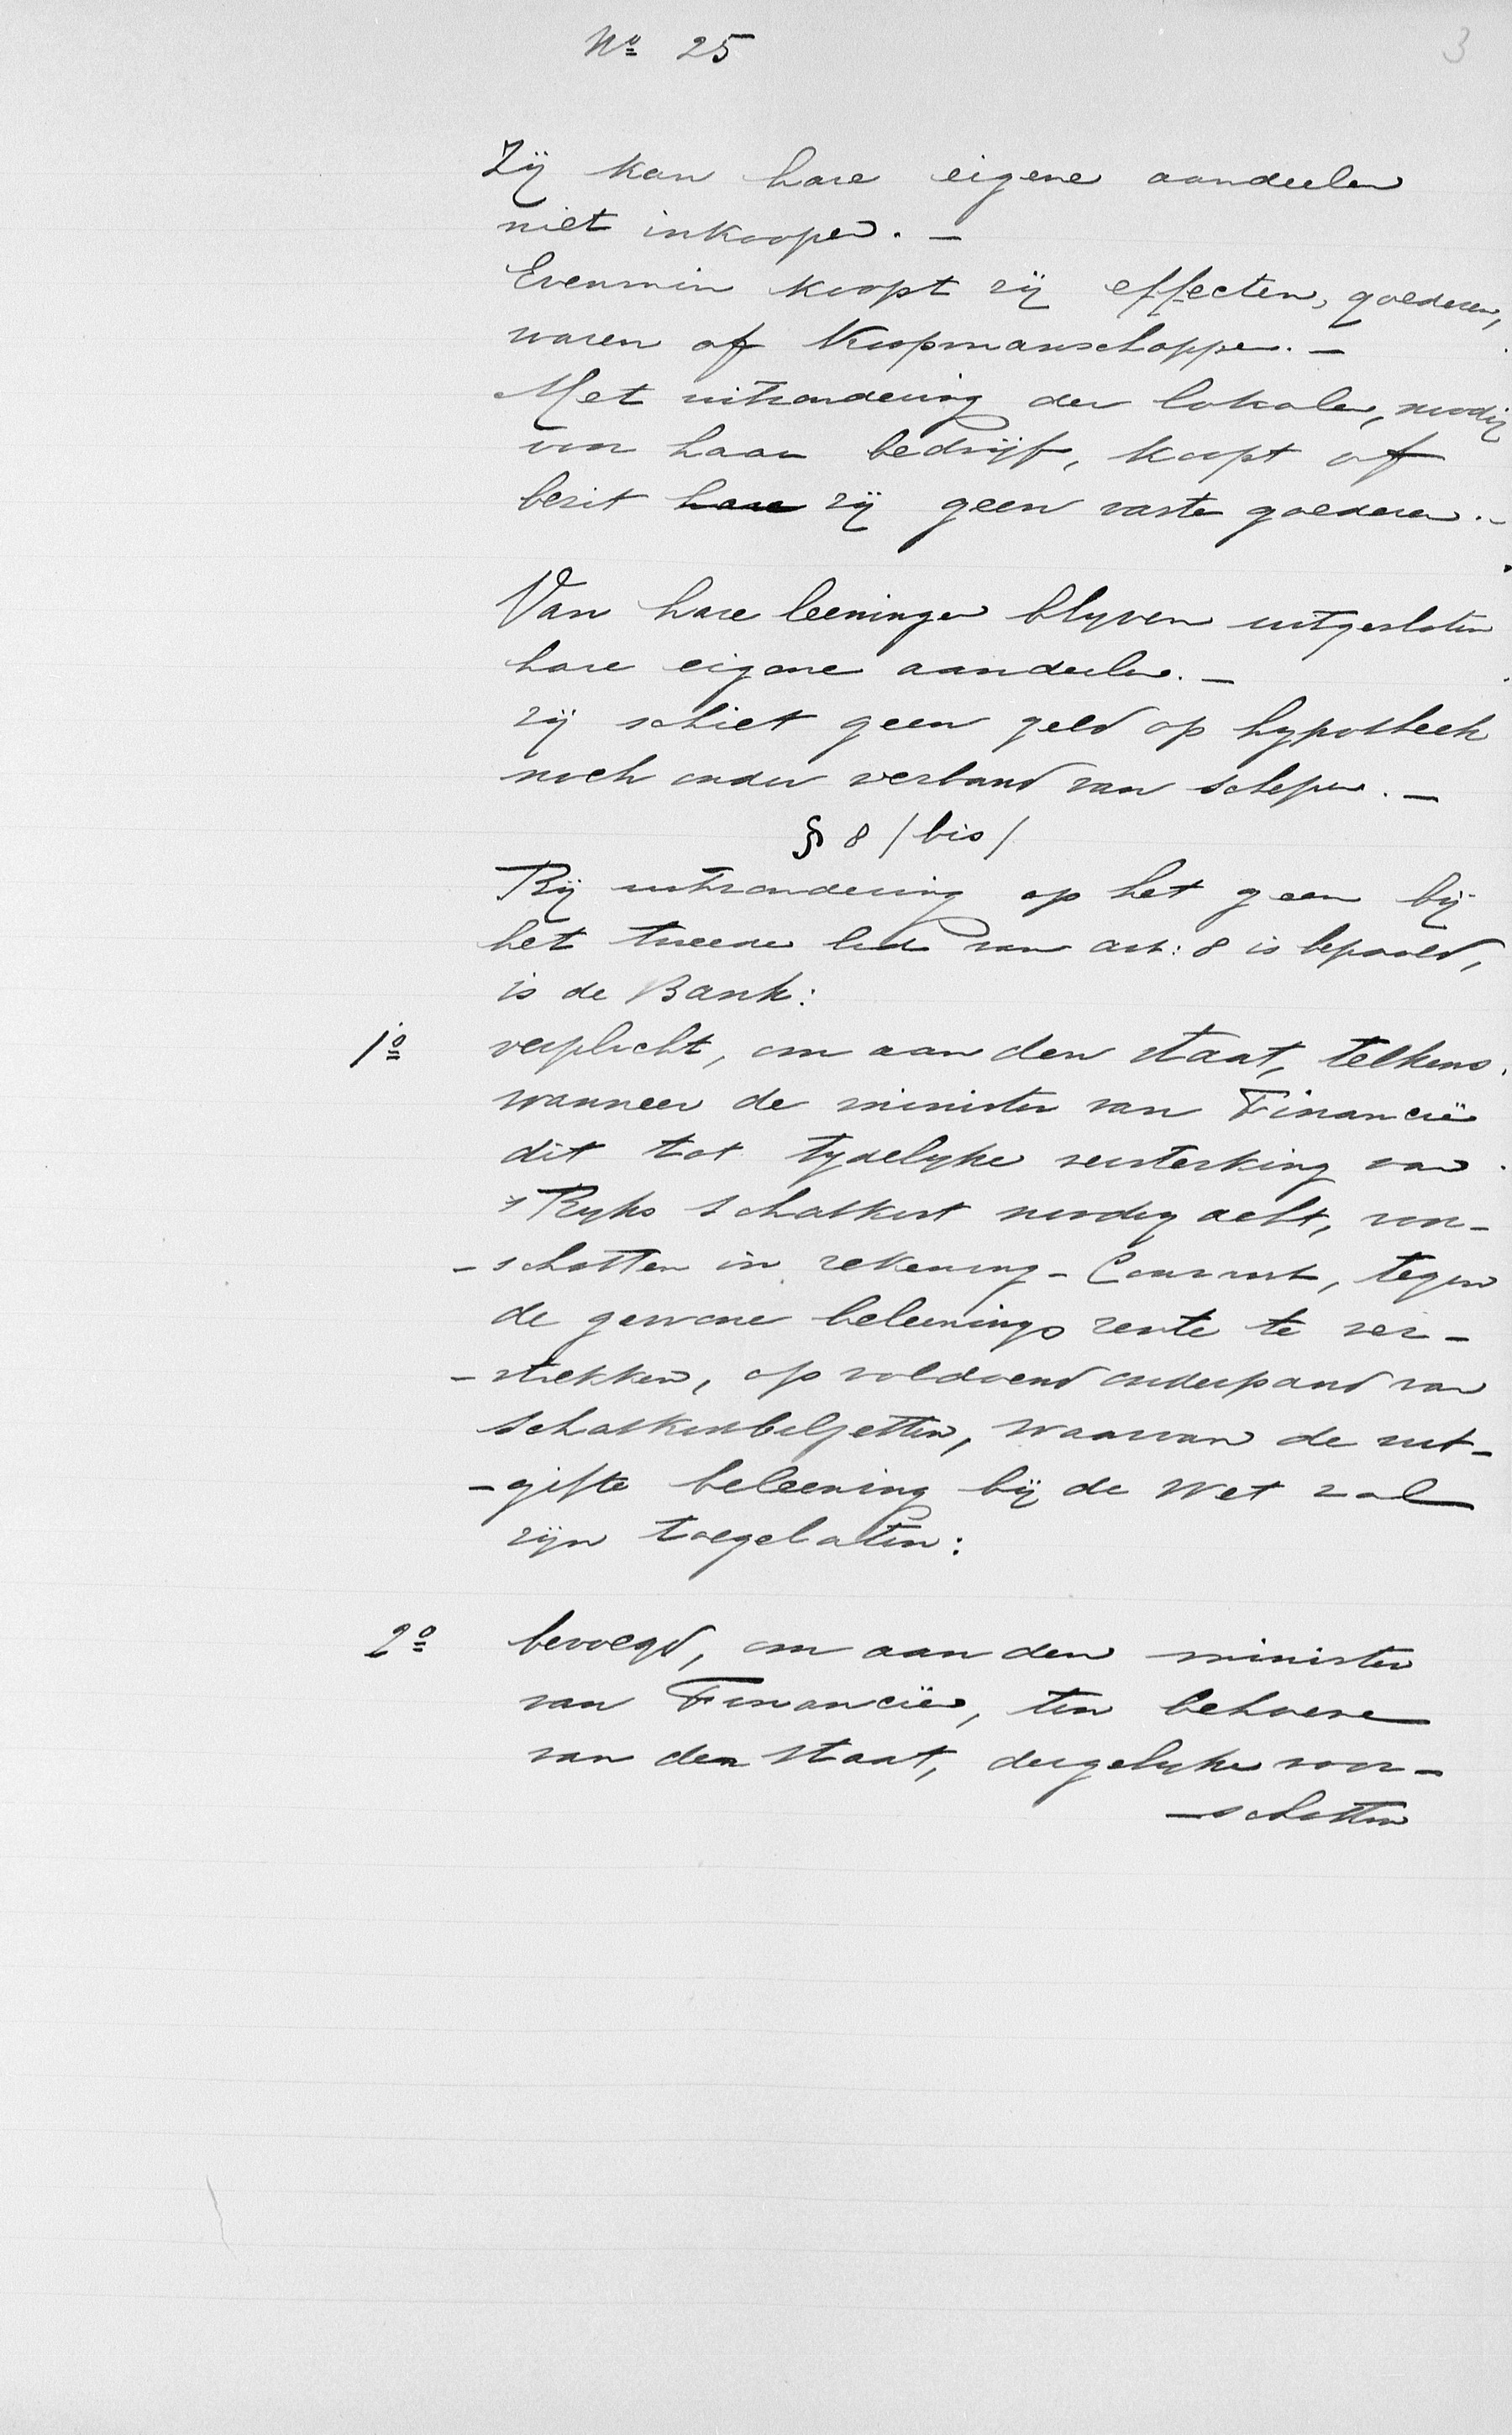 No 25
3
Zij kan hare eigene aandeelen
niet inkoopen. —
Evenmin koopt zij effecten, goederen,
waren of Koopmanschappen. —
Met uitzondering der lokalen, noodig
voor haar bedrijf, koopt of
bezit hare zij geen vaste goederen. —
Van hare leeningen blyven uitgesloten
hare eigene aandeelen. —
zij schiet geen geld op hypotheek
noch onder verband van schepen. —
§ 8 / bis /
Bij uitzondering op het geen bij
het tweede lid van art: 8 is bepaald,
is de Bank:
1o verplicht, om aan den staat, telkens
wanneer de minister van Financië
dit tot tydelyke versterking van
's Ryks schatkist noodig acht, voor-
-schotten in rekening-Courant, tegen
de gewone beleenings rente te ver-
-strekken, op voldoend onderpand van
schatkistbiljetten, waarvan de uit-
-gifte beleening bij de Wet zal
zijn toegelaten:
2o bevoegd, om aan den minister
van Financiën, ten behoeve
van den staat, dergelyke voor-
-schotten